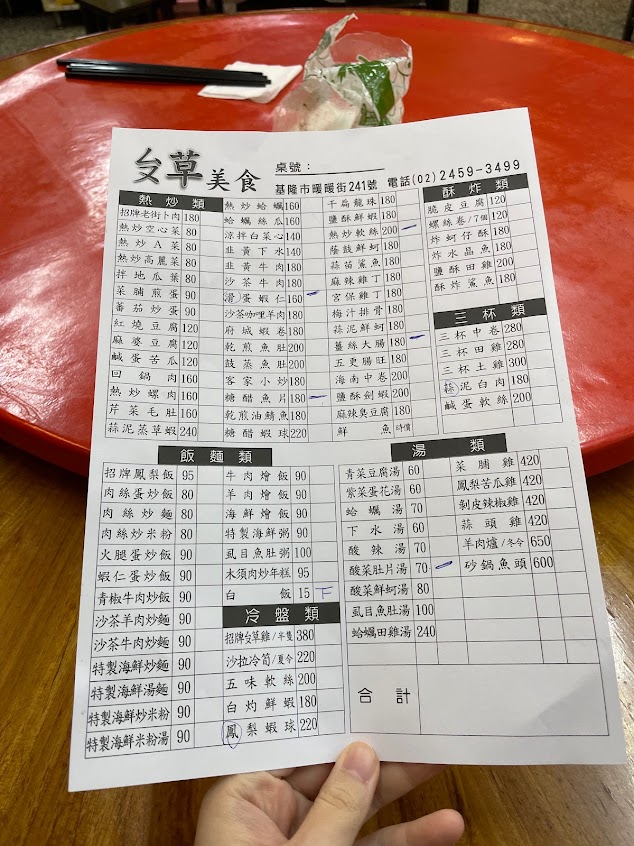 攵草美食
桌號：
基隆市暖暖街241號 電話(02)2459-3499
熱炒類
招牌老街卜肉 180
熱炒空心菜 80
熱炒A菜 80
熱炒高麗菜 80
拌地瓜葉 80
菜脯煎蛋 90
蕃茄炒蛋 90
紅燒豆腐 120
麻婆豆腐 120
鹹蛋苦瓜 120
回鍋肉 160
熱炒螺肉 160
芹菜毛肚 160
蒜泥草蝦 240
熱炒蛤蠣 160
蛤蠣絲瓜 160
涼拌白菜心 140
韭黃下水 140
韭黃牛肉 180
沙茶牛肉 180
滑蛋蝦仁 160
沙茶咖哩羊肉 180
府城蝦卷 180
乾煎魚肚 200
鼓蒸魚肚 200
客家小炒 180
糖醋魚片 180
乾煎油鯖魚 180
糖醋蝦球 220
干扁龍珠 180
鹽酥鮮蝦 180
熱炒軟絲 200
蔭鼓鮮蚵 180
蒜苗鯊魚 180
麻辣雞丁 180
宮保雞丁 180
梅汁排骨 180
蒜泥鮮蚵 180
薑絲大腸 180
五更腸旺 180
海南中卷 200
鹽酥劍蝦 200
麻辣臭豆腐 180
鮮魚 時價
酥炸類
脆皮豆腐 120
螺絲卷/7個 120
炸蚵仔酥 180
炸水晶魚 180
鹽酥田雞 200
酥炸鯊魚 180
三杯類
三杯中卷 280
三杯田雞 280
三杯土雞 300
蒜泥白肉 180
鹹蛋軟絲 200
飯麵類
招牌鳳梨飯 95
肉絲蛋炒飯 80
肉絲炒麵 80
肉絲炒米粉 80
火腿蛋炒飯 90
蝦仁蛋炒飯 90
青椒牛肉炒飯 90
沙茶羊肉炒麵 90
沙茶牛肉炒麵 90
特製海鮮炒麵 90
特製海鮮湯麵 90
特製海鮮炒米粉 90
特製海鮮米粉湯 90
牛肉燴飯 90
羊肉燴飯 90
海鮮燴飯 90
特製海鮮粥 90
虱目魚肚粥 100
木須肉炒年糕 95
白飯 15 下
冷盤類
招牌攵草雞/半隻 380
沙拉冷筍/夏令 220
五味軟絲 200
白灼鮮蝦 180
鳳梨蝦球 220
湯類
青菜豆腐湯 60
紫菜蛋花湯 60
蛤蠣湯 70
下水湯 60
酸辣湯 70
酸菜肚片湯 70
酸菜鮮蚵湯 80
虱目魚肚湯 100
蛤蠣田雞湯 240
菜脯雞 420
鳳梨苦瓜雞 420
剝皮辣椒雞 420
蒜頭雞 420
羊肉爐/冬令 650
砂鍋魚頭 600
合計